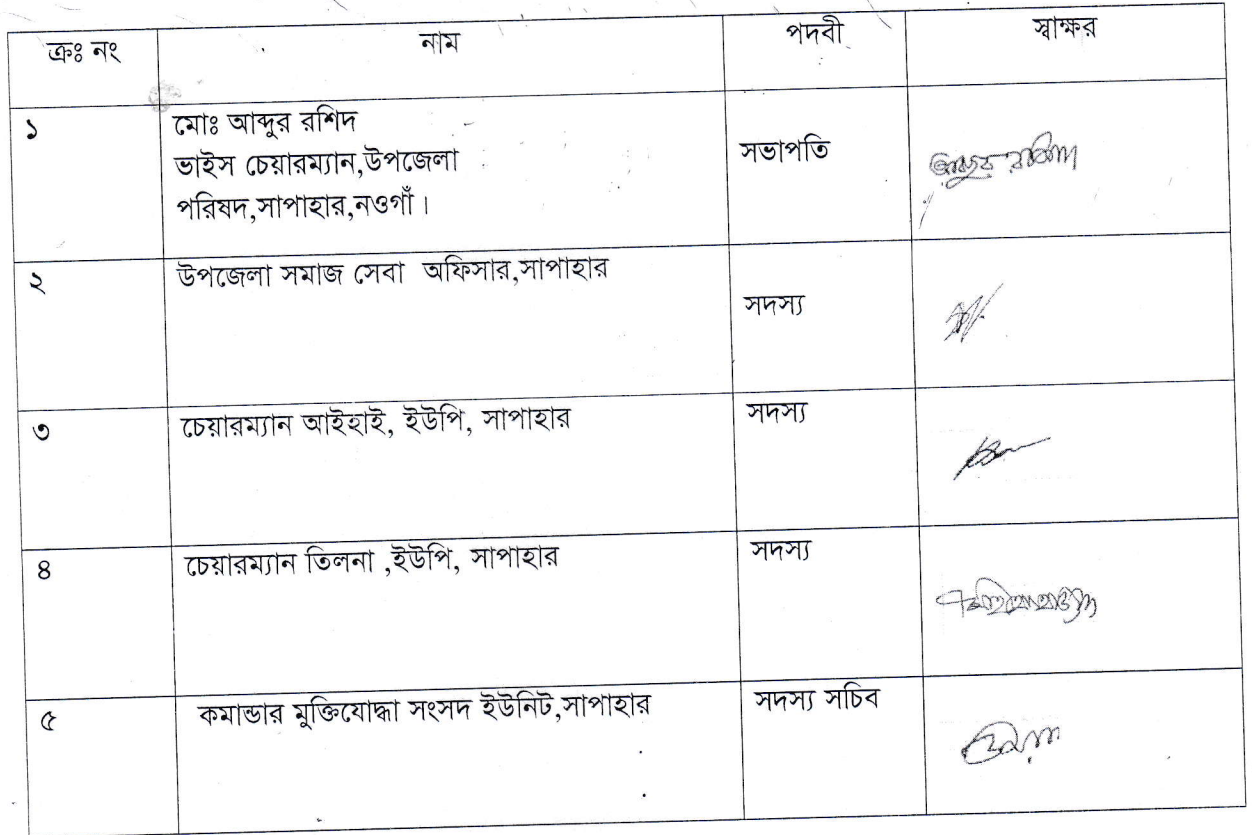 ক্রঃ নং নাম পদবী স্বাক্ষর
১ মোঃ আব্দুর রশিদ
ভাইস চেয়ারম্যান,উপজেলা সভাপতি
পরিষদ,সাপাহার,নওগাঁ।
২ উপজেলা সমাজ সেবা অফিসার,সাপাহার
সদস্য
৩ চেয়ারম্যান আইহাই, ইউপি, সাপাহার সদস্য
৪ চেয়ারম্যান তিলনা ,ইউপি, সাপাহার সদস্য
৫ কমান্ডার মুক্তিযোদ্ধা সংসদ ইউনিট,সাপাহার সদস্য সচিব